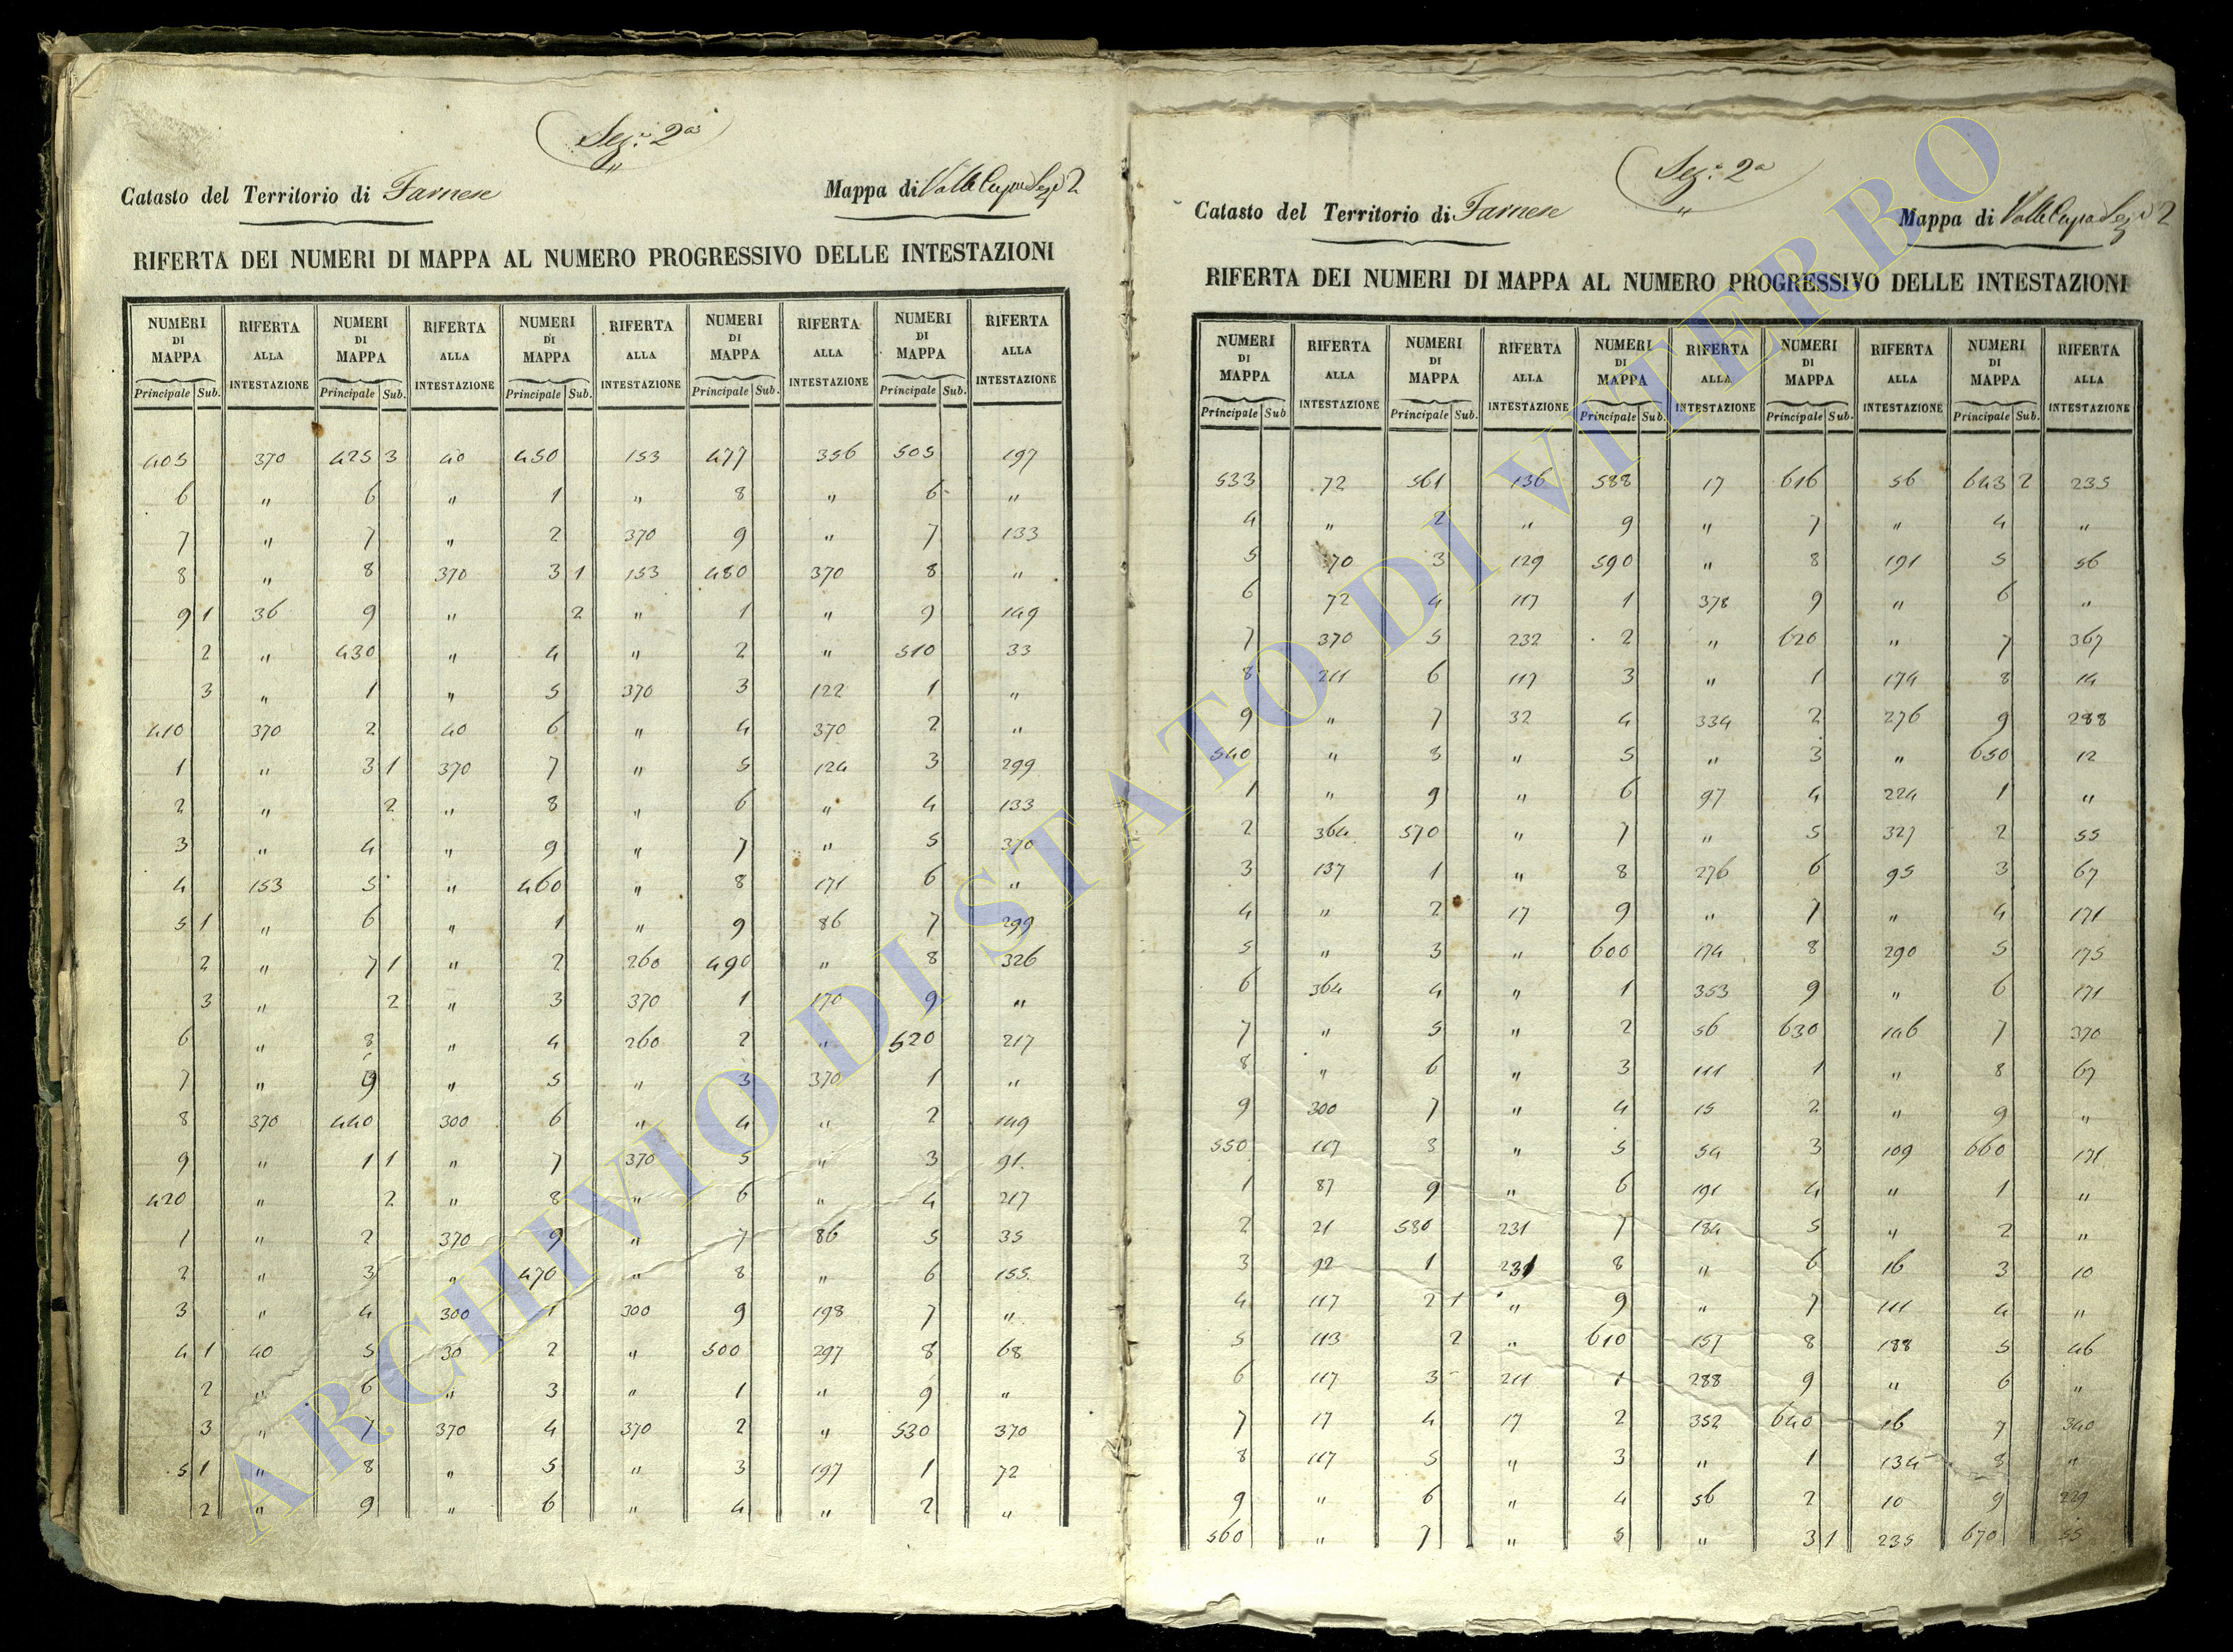 Sez.ne 2a
Catasto del Territorio di Farnese Mappa di Valle Cupa Sez.e 2
RIFERTA DEI NUMERI DI MAPPA AL NUMERO PROGRESSIVO DELLE INTESTAZIONI
NUMERI DI MAPPA RIFERTA ALLA INTESTAZIONE NUMERI DI MAPPA RIFERTA ALLA INTESTAZIONE NUMERI DI MAPPA RIFERTA ALLA INTESTAZIONE NUMERI DI MAPPA RIFERTA ALLA INTESTAZIONE NUMERI DI MAPPA RIFERTA ALLA INTESTAZIONE
Principale Sub. Principale Sub. Principale Sub. Principale Sub. Principale Sub.
405 370 425 3 40 450 153 477 356 505 197
6 " 6 " 1 " 8 " 6 "
7 " 7 " 2 370 9 " 7 133
8 " 8 370 3 1 153 480 370 8 "
9 1 36 9 " 2 " 1 " 9 149
2 " 430 " 4 " 2 " 510 33
3 " 1 " 5 370 3 122 1 "
410 370 2 40 6 " 4 370 2 "
1 " 3 1 370 7 " 5 124 3 299
2 " 2 " 8 " 6 " 4 133
3 " 4 " 9 " 7 " 5 370
4 153 5 " 460 " 8 171 6 "
5 1 " 6 " 1 " 9 86 7 299
2 " 7 1 " 2 260 490 " 8 326
3 " 2 " 3 370 1 170 9 "
6 " 8 " 4 260 2 " 520 217
7 " 9 " 5 " 3 370 1 "
8 370 440 300 6 " 4 " 2 149
9 " 1 1 " 7 370 5 " 3 91
420 " 2 " 8 " 6 " 4 217
1 " 2 370 9 " 7 86 5 35
2 " 3 " 470 " 8 " 6 155
3 " 4 300 1 300 9 198 7 "
4 1 40 5 30 2 " 500 297 8 68
2 " 6 " 3 " 1 " 9 "
3 " 7 370 4 370 2 " 530 370
5 1 " 8 " 5 " 3 197 1 72
2 " 9 " 6 " 4 " 2 "
Sez.e 2a
Catasto del Territorio di Farnese Mappa di Valle Cupa Sez.e 2
RIFERTA DEI NUMERI DI MAPPA AL NUMERO PROGRESSIVO DELLE INTESTAZIONI
NUMERI DI MAPPA RIFERTA ALLA INTESTAZIONE NUMERI DI MAPPA RIFERTA ALLA INTESTAZIONE NUMERI DI MAPPA RIFERTA ALLA INTESTAZIONE NUMERI DI MAPPA RIFERTA ALLA INTESTAZIONE NUMERI DI MAPPA RIFERTA ALLA INTESTAZIONE
Principale Sub Principale Sub. Principale Sub. Principale Sub. Principale Sub.
533 72 561 136 588 17 616 56 643 2 235
4 " 2 " 9 " 7 " 4 "
5 70 3 129 590 " 8 191 5 56
6 72 4 117 1 378 9 " 6 "
7 370 5 232 2 " 620 " 7 367
8 211 6 117 3 " 1 174 8 14
9 " 7 32 4 334 2 276 9 288
540 " 8 " 5 " 3 " 650 12
1 " 9 " 6 97 4 224 1 "
2 364 570 " 7 " 5 327 2 55
3 137 1 " 8 276 6 95 3 67
4 " 2 17 9 " 7 " 4 171
5 " 3 " 600 174 8 290 5 175
6 364 4 " 1 353 9 " 6 171
7 " 5 " 2 56 630 146 7 370
8 " 6 " 3 111 1 " 8 67
9 300 7 " 4 15 2 " 9 "
550 117 8 " 5 54 3 109 660 171
1 87 9 " 6 191 4 " 1 "
2 21 580 231 7 184 5 " 2 "
3 92 1 231 8 " 6 16 3 10
4 117 2 1 " 9 " 7 111 4 "
5 113 2 " 610 157 8 188 5 46
6 117 3 211 1 288 9 " 6 "
7 17 4 17 2 352 640 16 7 340
8 117 5 " 3 " 1 134 8 "
9 " 6 " 4 56 2 10 9 229
560 " 7 " 5 " 3 1 235 670 55
ARCHIVIO DI STATO DI VITERBO